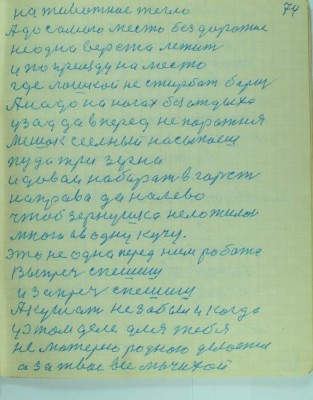 74
на животное тегло
А до самого места без дорожне
не одна верста лежит
и по преезду на место
где лошкой не стирбат беру
А надо на ногах без отдыха
узад да в перед не порожня
Мешок сеелный насыпаеш
пуда три зерна
и довай набират в гарст
направа да налево
чтоб зернушка не ложилос
много в одну кучу.
Это не одна перед ним работа
Выпреч спешиш
и запреч спешиш
А кушат не забыл и когда
у этом деле для тебя
не матерю родного делается
а за твае все мачихой